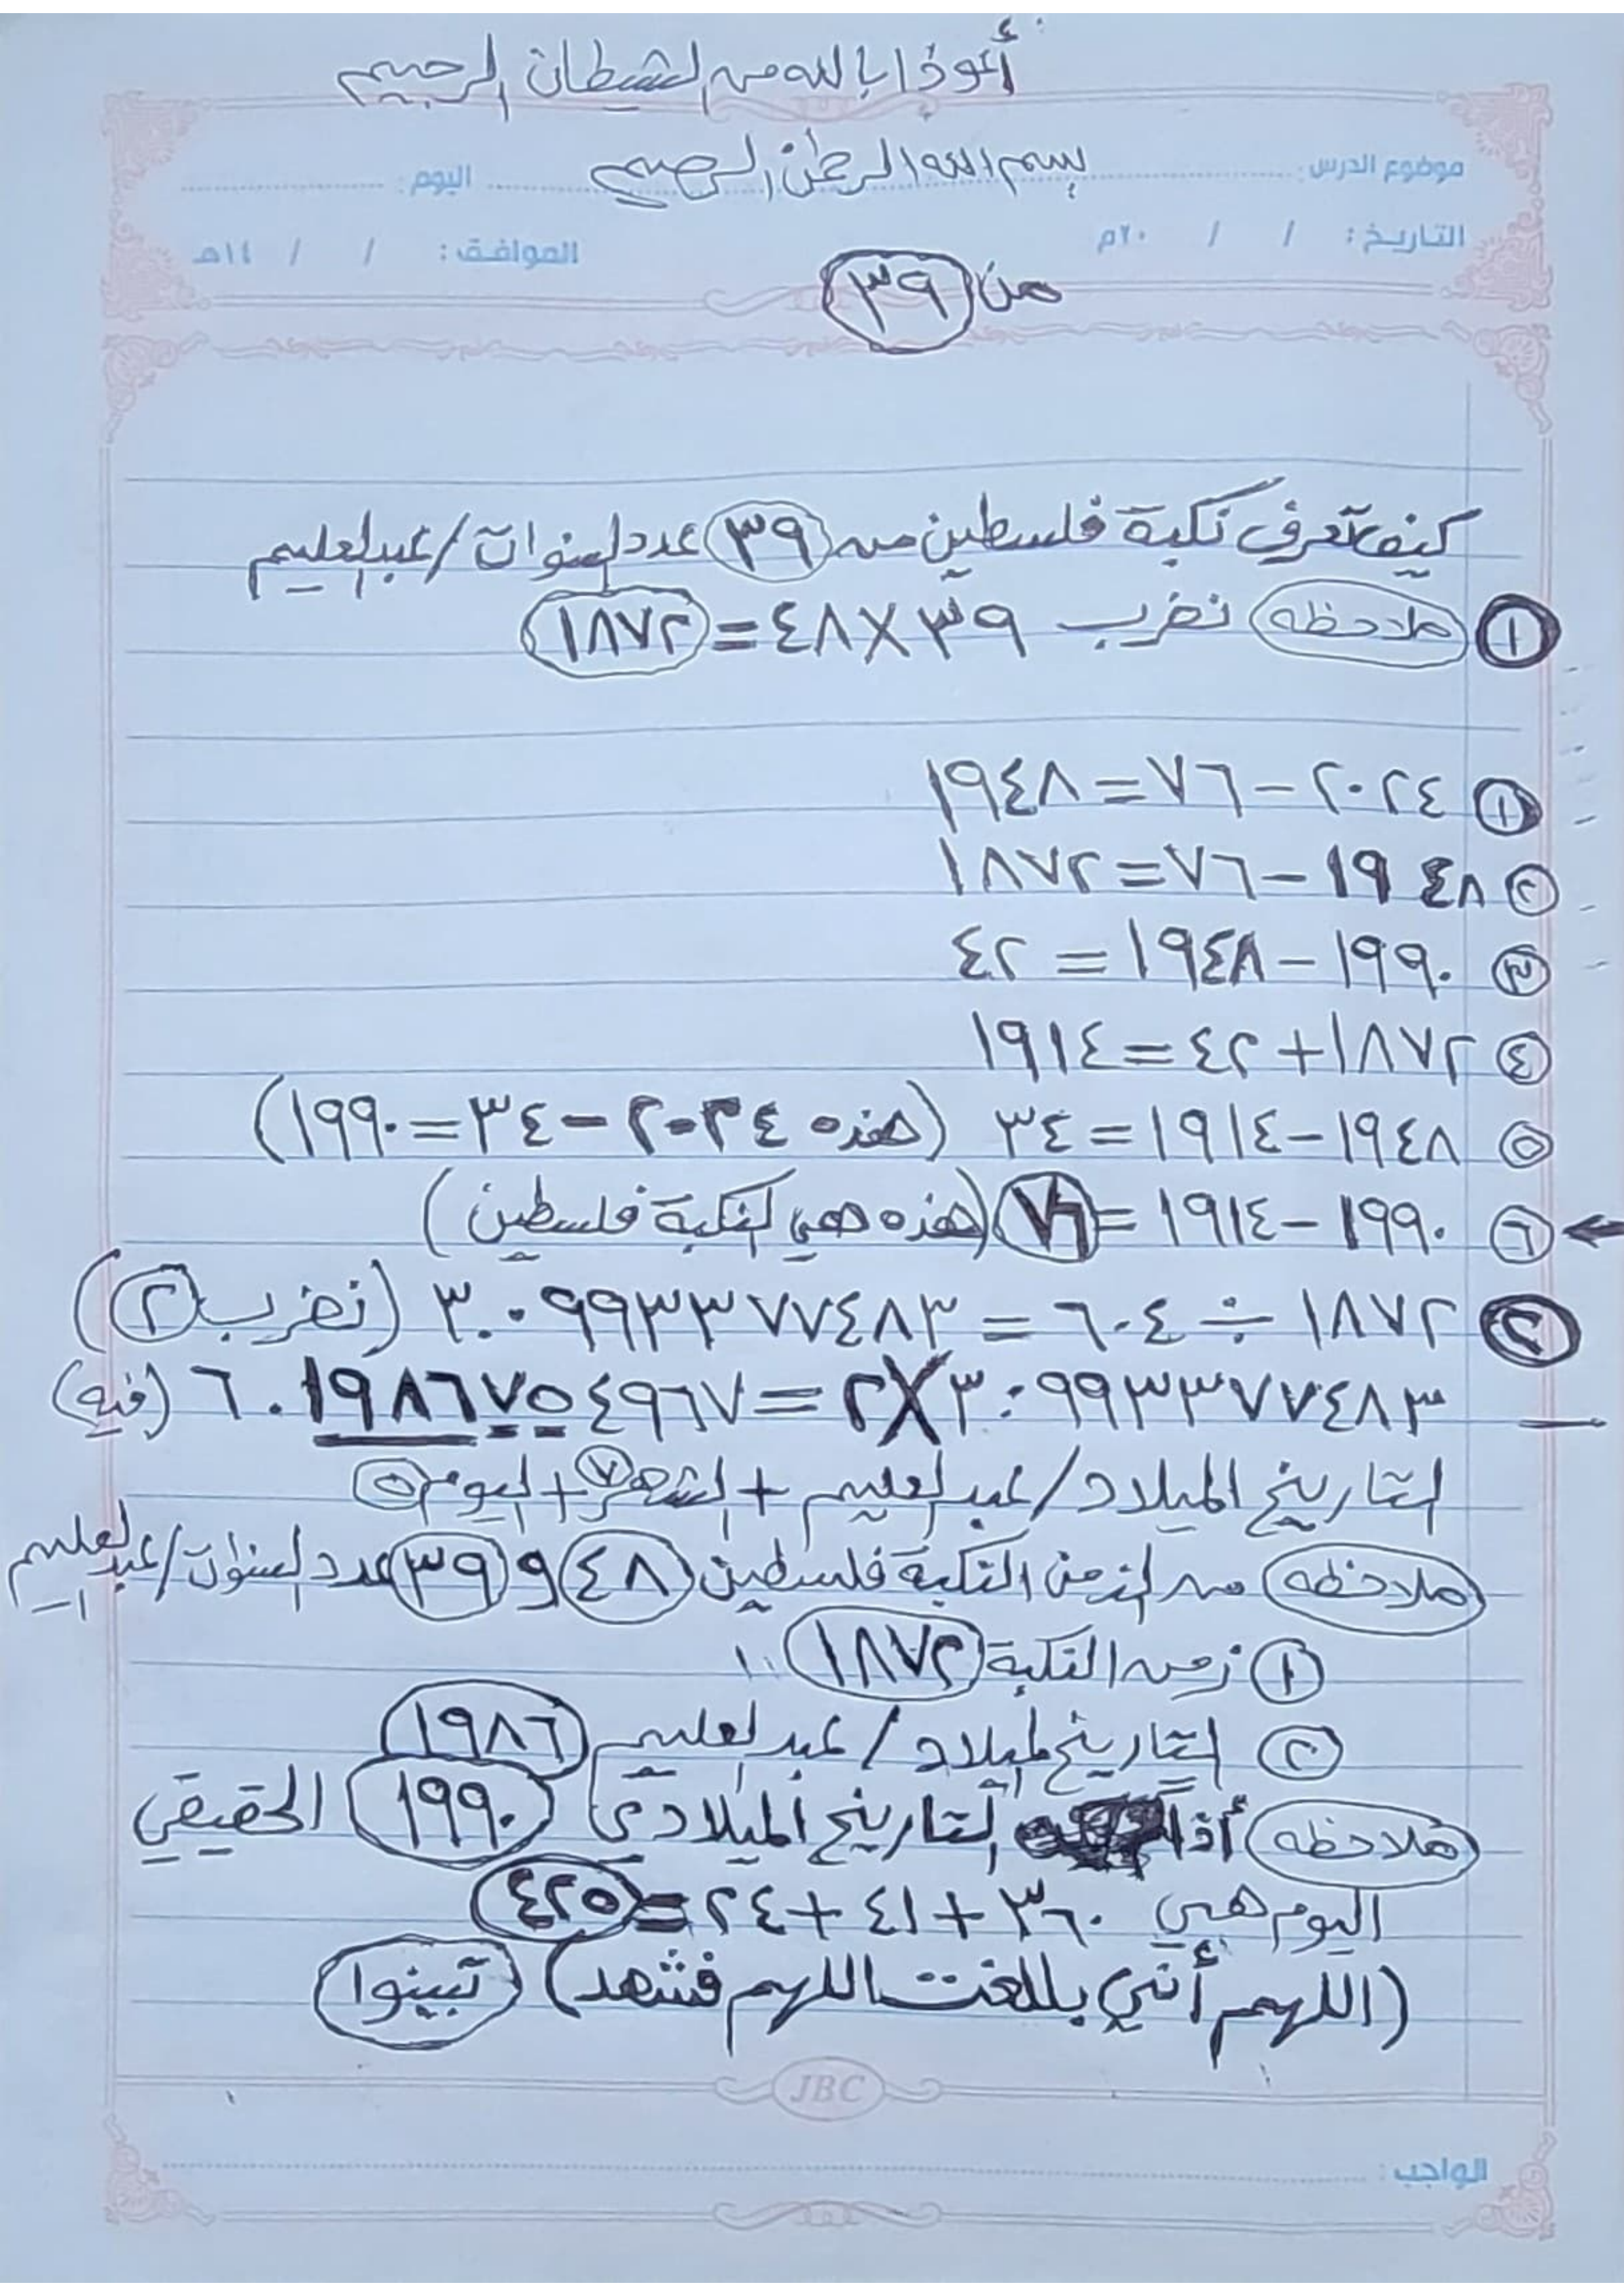 أعوذ بالله من الشيطان الرجيم
بسم الله الرحمن الرحيم
موضوع الدرس: اليوم:
التاريخ: / / ٢٠م الموافق: / / ١٤هـ
من ٣٩
كيف تعرف نكبة فلسطين من ٣٩ عدد السنوات / عبدالعليم
١ ملاحظه نضرب ٣٩×٤٨=١٨٧٢
١ ٢٠٢٤-٧٦=١٩٤٨
٢ ١٩٤٨-٧٦=١٨٧٢
٣ ١٩٩٠-١٩٤٨=٤٢
٤ ١٨٧٢+٤٢=١٩١٤
٥ ١٩٤٨-١٩١٤=٣٤ (هذه ٢٠٢٤-٣٤=١٩٩٠)
٦ ١٩٩٠-١٩١٤=٧٦ (هذه هي النكبة فلسطين)
٢ ١٨٧٢÷٦٠٤=٣.٠٩٩٣٣٧٧٤٨٣ (نضرب ٢)
٣.٠٩٩٣٣٧٧٤٨٣×٢=٦.١٩٨٦٧٥٤٩٦٧ (فيه)
التاريخ الميلاد / عبدالعليم + الشهر ٧ + اليوم ٥
ملاحظه من الزمن النكبة فلسطين ٤٨ و ٣٩ عدد السنوات / عبدالعليم
١ زمن النكبة ١٨٧٢
٢ التاريخ الميلاد / عبدالعليم ١٩٨٦
ملاحظه أذا التاريخ الميلادي ١٩٩٠ الحقيقي
اليوم هي ٣٦٠+٤١+٢٤=٤٢٥
(اللهم أني بللغت اللهم فشهد) تبينوا
JBC
الواجب: